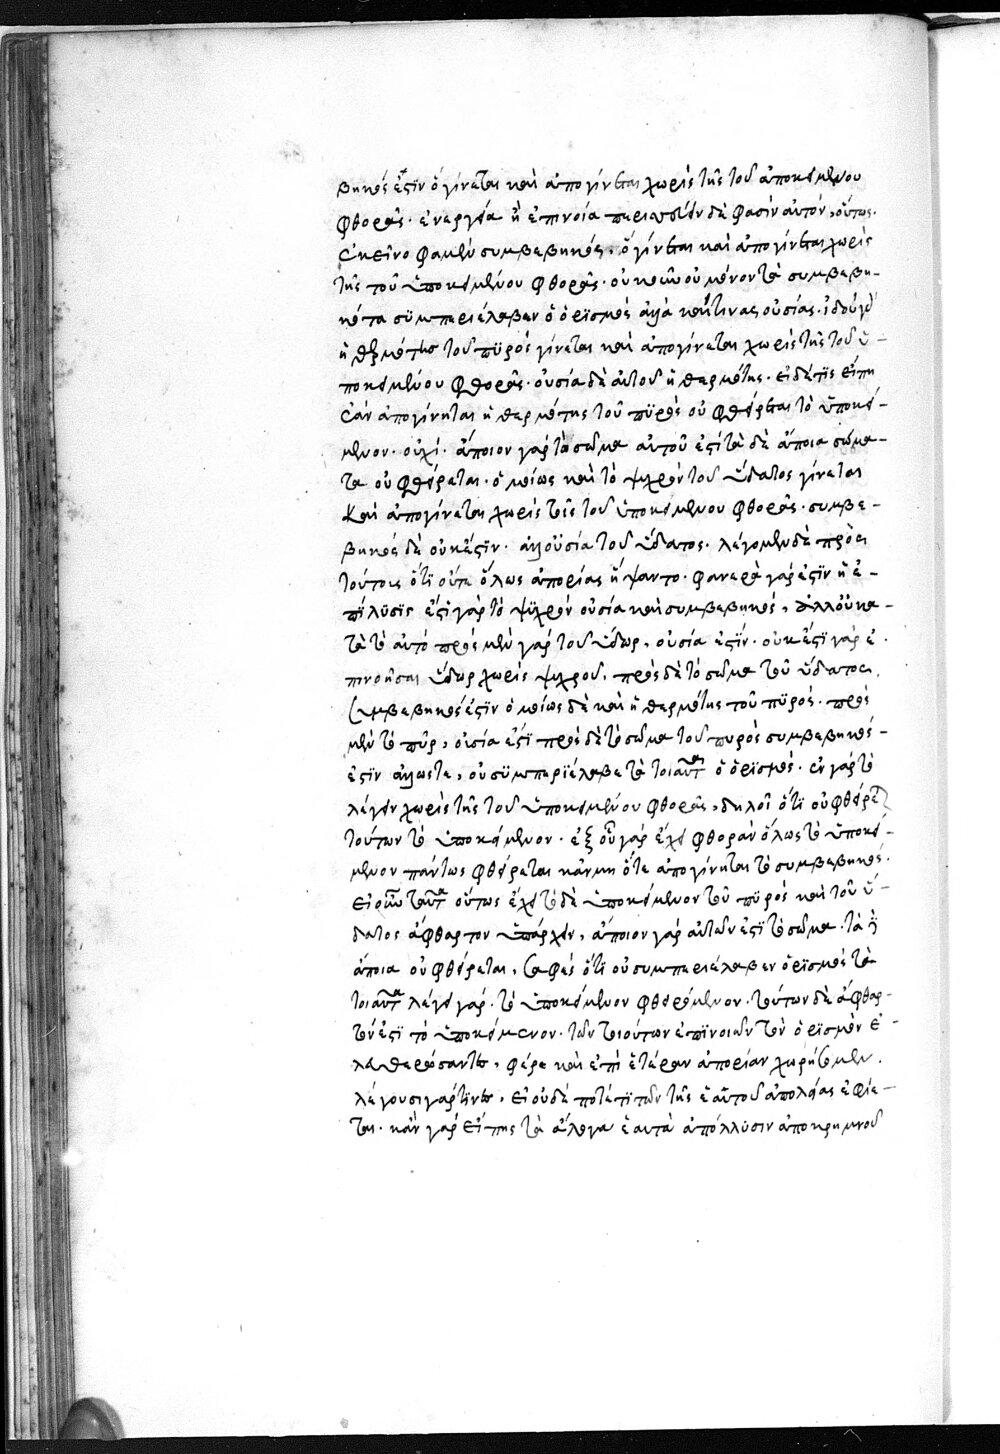 βηκός ἐστιν ὃ γίνεται καὶ ἀπογίνεται χωρὶς τῆς τοῦ ὑποκειμένου
φθορᾶς· ἐνεργεία ἢ ἐπινοία περιωστέον δὲ φασὶν αὐτὸν, οὕτως·
ἐκεῖνο φαμὲν συμβεβηκός, ὃ γίνεται καὶ ἀπογίνεται χωρὶς
τῆς τοῦ ὑποκειμένου φθορᾶς· οὐκοῦν οὐ μόνον τὰ συμβεβη-
κότα συμπεριέλαβεν ὁ ὁρισμὸς ἀλλὰ καὶ τινας οὐσίας· ἰδοὺ γὰρ
ἡ θερμότης τοῦ πυρὸς γίνεται καὶ ἀπογίνεται χωρὶς τῆς τοῦ ὑ-
ποκειμένου φθορᾶς· οὐσία δὲ αὐτοῦ ἡ θερμότης· εἰ δέ τις εἴπη
ἐὰν ἀπογίνηται ἡ θερμότης τοῦ πυρὸς οὐ φθείρεται τὸ ὑποκεί-
μενον· οὐχί· ἄποιον γὰρ τὸ σῶμα αὐτοῦ ἐστί τὰ δὲ ἄποια σώμα-
τα οὐ φθείρεται· ὁμοίως καὶ τὸ ψυχρόν τοῦ ὕδατος γίνεται
καὶ ἀπογίνεται χωρὶς τῆς τοῦ ὑποκειμένου φθορᾶς· συμβε-
βηκὸς δὲ οὐκ ἔστιν· ἀλλ' οὐσία τοῦ ὕδατος· λέγομεν δὲ πρὸς
τούτοις ὅτι οὔτε ὅλως ἀπορίας ἥψαντο· φανερὰ γάρ ἐστιν ἡ ἐ-
πίλυσις ἐστὶ γὰρ τὸ ψυχρόν οὐσία καὶ συμβεβηκός, ἀλλ' οὐ κα-
τὰ τὸ αὐτό πρὸς μὲν γὰρ τοῦ ὕδωρ, οὐσία ἐστίν· οὐκ ἔστι γὰρ ἐ-
πινοῆσαι ὕδωρ χωρὶς ψυχροῦ, πρὸς δὲ τὸ σῶμα τοῦ ὕδατος,
συμβεβηκός ἐστιν ὁμοίως δὲ καὶ ἡ θερμότης τοῦ πυρός· πρὸς
μὲν τὸ πῦρ, οὐσία ἐστί πρὸς δὲ τὸ σῶμα τοῦ πυρὸς συμβεβηκός
ἐστιν ἄλλως τε, οὐ συμπεριέλαβε τὰ τοιαῦτα ὁ ὁρισμός· ἐν γὰρ τῷ
λέγειν χωρὶς τῆς τοῦ ὑποκειμένου φθορᾶς, δηλοῖ ὅτι οὐ φθείρεται
τούτων τὸ ὑποκείμενον· ἐξ οὗ γὰρ ἔχει φθορὰν ὅλως τὸ ὑποκεί-
μενον πάντως φθείρεται κἂν μὴ ὅτε ἀπογίνηται τὸ συμβεβηκός·
εἰ οὖν ταῦτα οὕτως ἔχει τὸ δὲ ὑποκείμενον τοῦ πυρὸς καὶ τοῦ ὕ-
δατος ἄφθαρτον ὑπάρχειν, ἄποιον γὰρ αὐτῶν ἐστὶ τὸ σῶμα· τὰ δὲ
ἄποια οὐ φθείρεται, σαφὲς ὅτι οὐ συμπεριέλαβεν ὁρισμὸς τὰ
τοιαῦτα λέγει γάρ· τὸ ὑποκείμενον φθειρόμενον· τούτων δὲ ἄφθαρ-
τόν ἐστι τὸ ὑποκείμενον· τῶν τοιούτων ἐπινοιῶν τὸν ὁρισμὸν ἐ-
λευθερώσαντες, φέρε καὶ ἐπὶ ἑτέραν ἀπορίαν χωρήσωμεν·
λέγουσι γάρ τινες, εἰ οὐδέ ποτέ τι τῶν τῆς ἑαυτοῦ ἀπωλείας ἐφίε-
ται· κἂν γὰρ εἴπης τὰ ἄλογα ἑαυτὰ ἀπόλλυσιν ἀπὸ κρημνοῦ